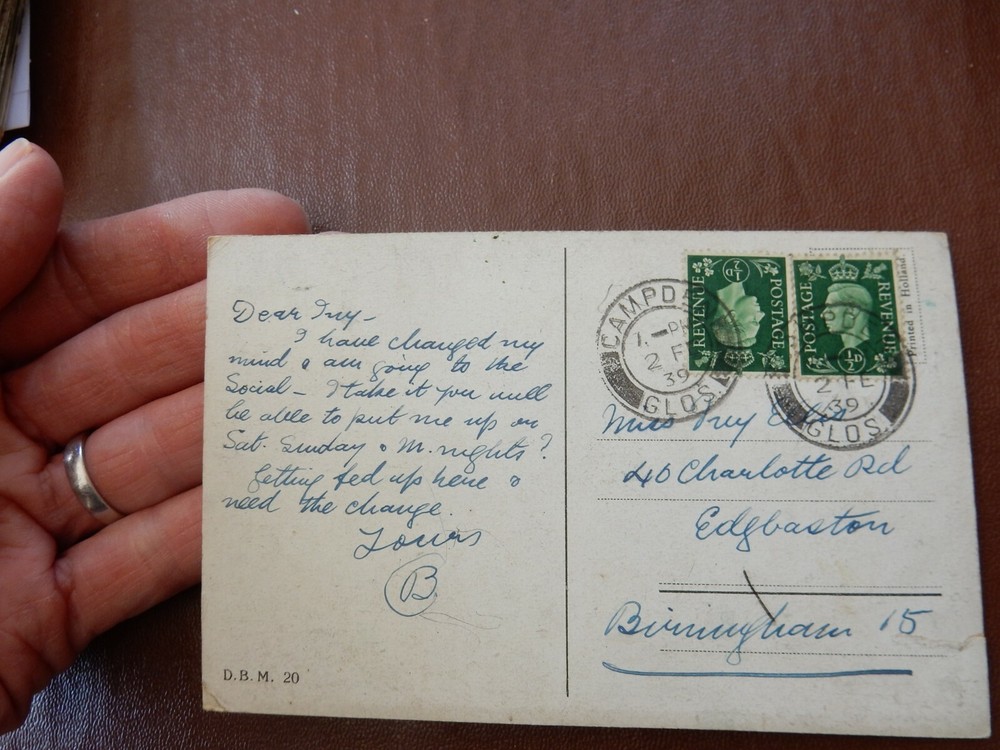 Dear Ivy -
I have changed my
mind & am going to the
Social - I take it you will
be able to put me up on
Sat. Sunday & M. nights?
Getting fed up here &
need the change.
Yours
B.
D.B.M. 20
CAMPD
1 - PM
2 FE
39
GLOS.
REVENUE
½D
POSTAGE
POSTAGE
½D
REVENUE
2 FE
39
GLOS.
Printed in Holland
Miss Ivy
40 Charlotte Rd
Edgbaston
Birmingham 15